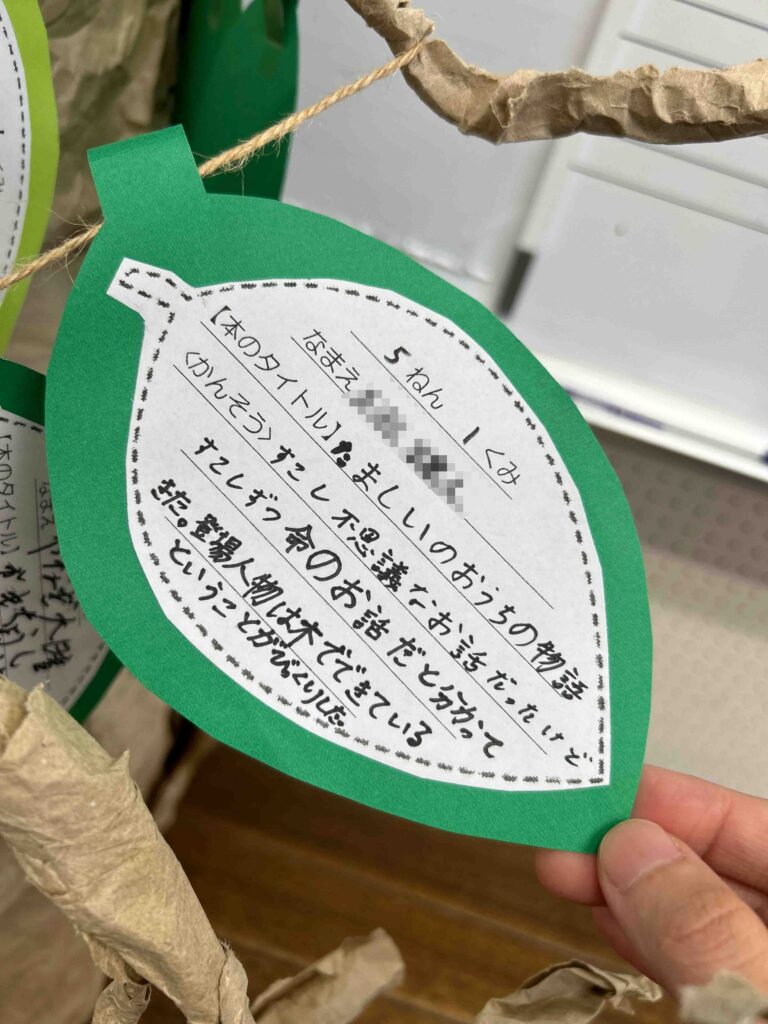 5 ねん 1 くみ
なまえ
【本のタイトル】たましいのおうちの物語
〈かんそう〉すこし不思議なお話だったけど
すこしずつ命のお話だと分かって
きた。登場人物は木でできている
ということがびっくりした。
【本のタイトル】
なまえ